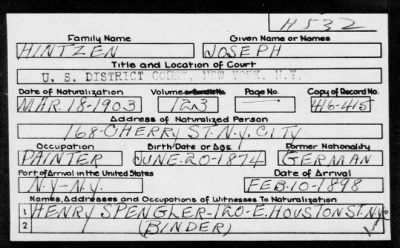 H532
Family Name Given Name or Names
HINTZEN JOSEPH
Title and Location of Court
U. S. DISTRICT COURT, NEW YORK, N.Y.
Date of Naturalization Volume or Bundle No. Page No. Copy of Record No.
MAR. 18-1903 123 416-415
Address of Naturalized Person
168-CHERRY ST. N.Y. CITY
Occupation Birth Date or Age Former Nationality
PAINTER JUNE-20-1874 GERMAN
Port of Arrival in the United States Date of Arrival
N.Y-N.Y. FEB-10-1898
Names, Addresses and Occupations of Witnesses To Naturalization
1 HENRY SPENGLER-120-E. HOUSTON ST. N.Y.
2 (BINDER)